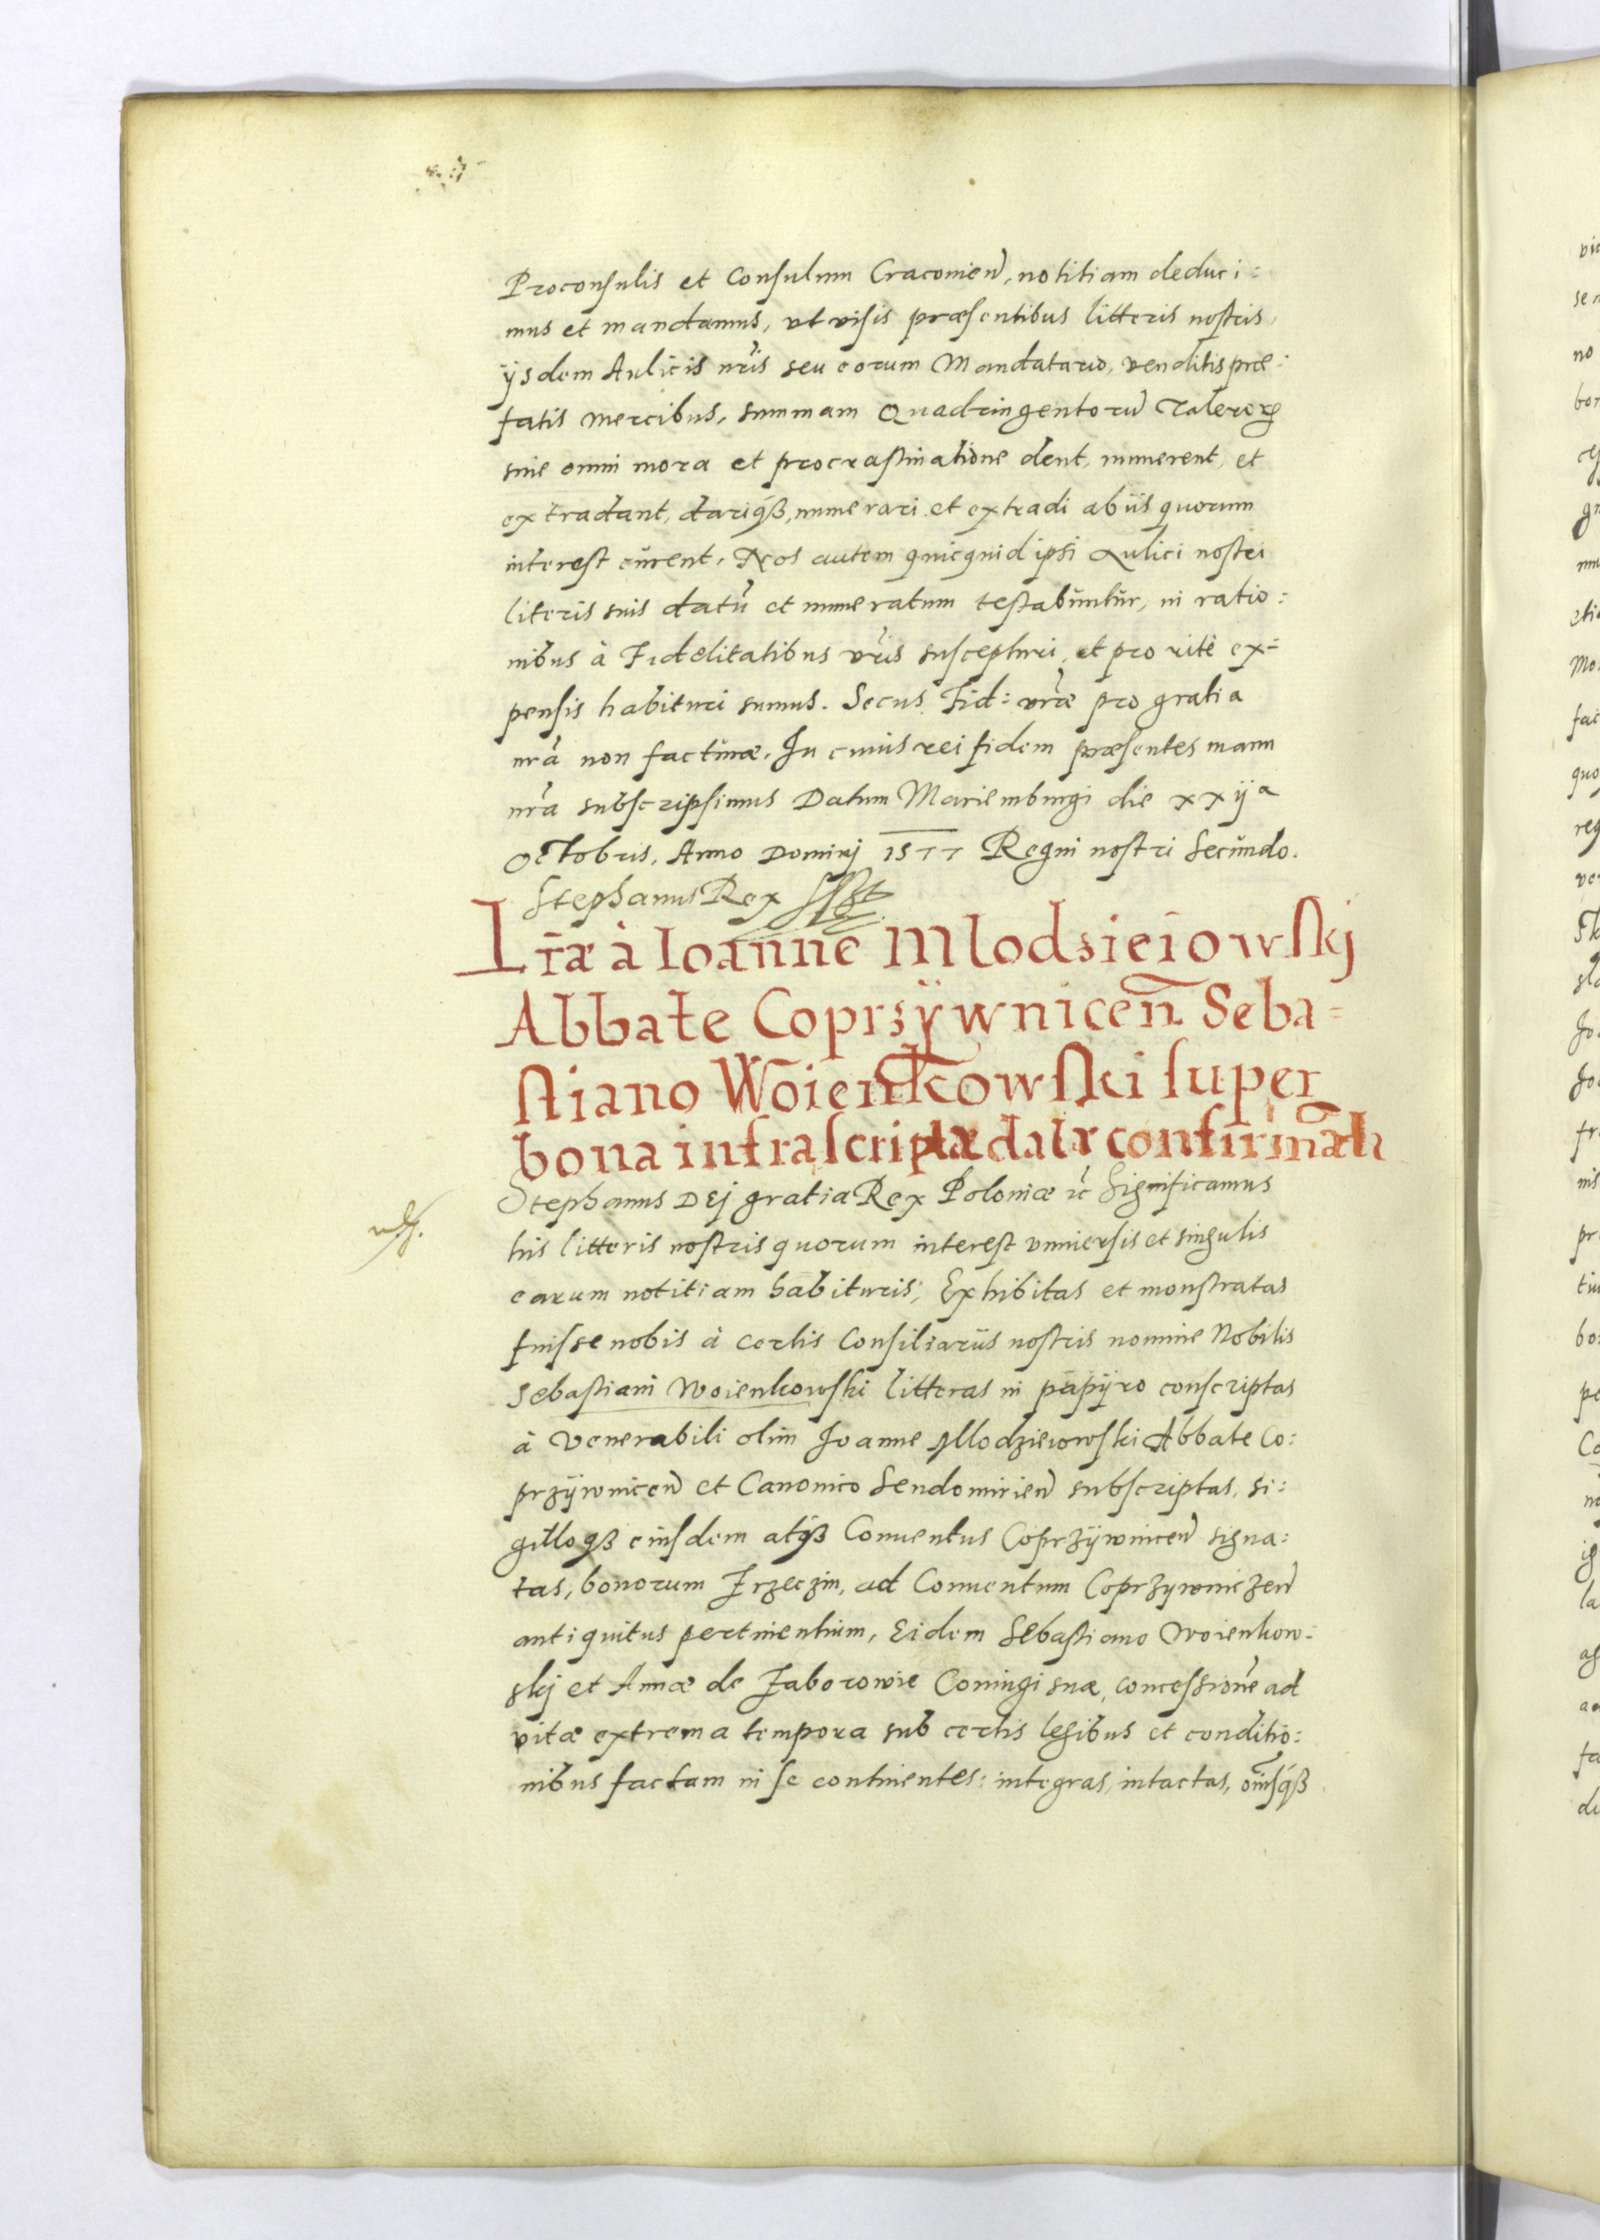 Proconsulis et Consulum Cracouien̄, notitiam deduci:
mus et mandamus, vt visis præsentibus litteris nostris,
ijsdem Aulicis nr̄is seu eorum Mandatario, venditis præ:
fatis mercibus, summam Quadringentorū Taleroꝝ
sine omni mora et procrastinatione dent, numerent, et
extradant, dariqꝫ, numerari et extradi ab iis quorum
interest curent. Nos autem quicquid ipsi Aulici nostri
literis suis datū et numeratum testabuntur, in ratio:
nibus à Fidelitatibus vr̄is suscepturi, et pro ritè ex:
pensis habituri sumus. Secus Fid: vr̄æ pro gratia
nr̄a non facturæ. In cuius rei fidem præsentes manu
nr̄a subscripsimus Datum Mariemburgi die xxij a
Octobris, Anno Dominj 1577 Regni nostri Secundo.
Stephanus Rex
Lr̄æ à Ioanne Mlodsieiowskj
Abbate Coprzÿwnicen̄ Seba=
stiano Woienkowski super
bona infrascripta datæ confirmat̄
Stephanus Dej gratia Rex Poloniæ ec̄ Significamus
his litteris nostris quorum interest vniuersis et singulis
earum notitiam habituris, Exhibitas et monstratas
fuisse nobis à certis Consiliariis nostris nomine Nobilis
Sebastiani Woienkowski litteras in papÿro conscriptas
à Venerabili olim Joanne Mlodzieiowski Abbate Co:
przÿwnicen̄ et Canonico Sendomirien̄ subscriptas, si:
gilloqꝫ eiusdem atqꝫ Conuentus Coprzÿwnicen̄ signa:
tas, bonorum Trzeczin, ad Conuentum Coprzywniczen̄
antiquitus pertinentium, Eidem Sebastiano Woienkow:
skj et Annæ de Zaborowie Coniugi suæ, concessionē ad
vitæ extrema tempora sub certis legibus et conditio:
nibus factam in se continentes: integras, intactas, om̄isqꝫ